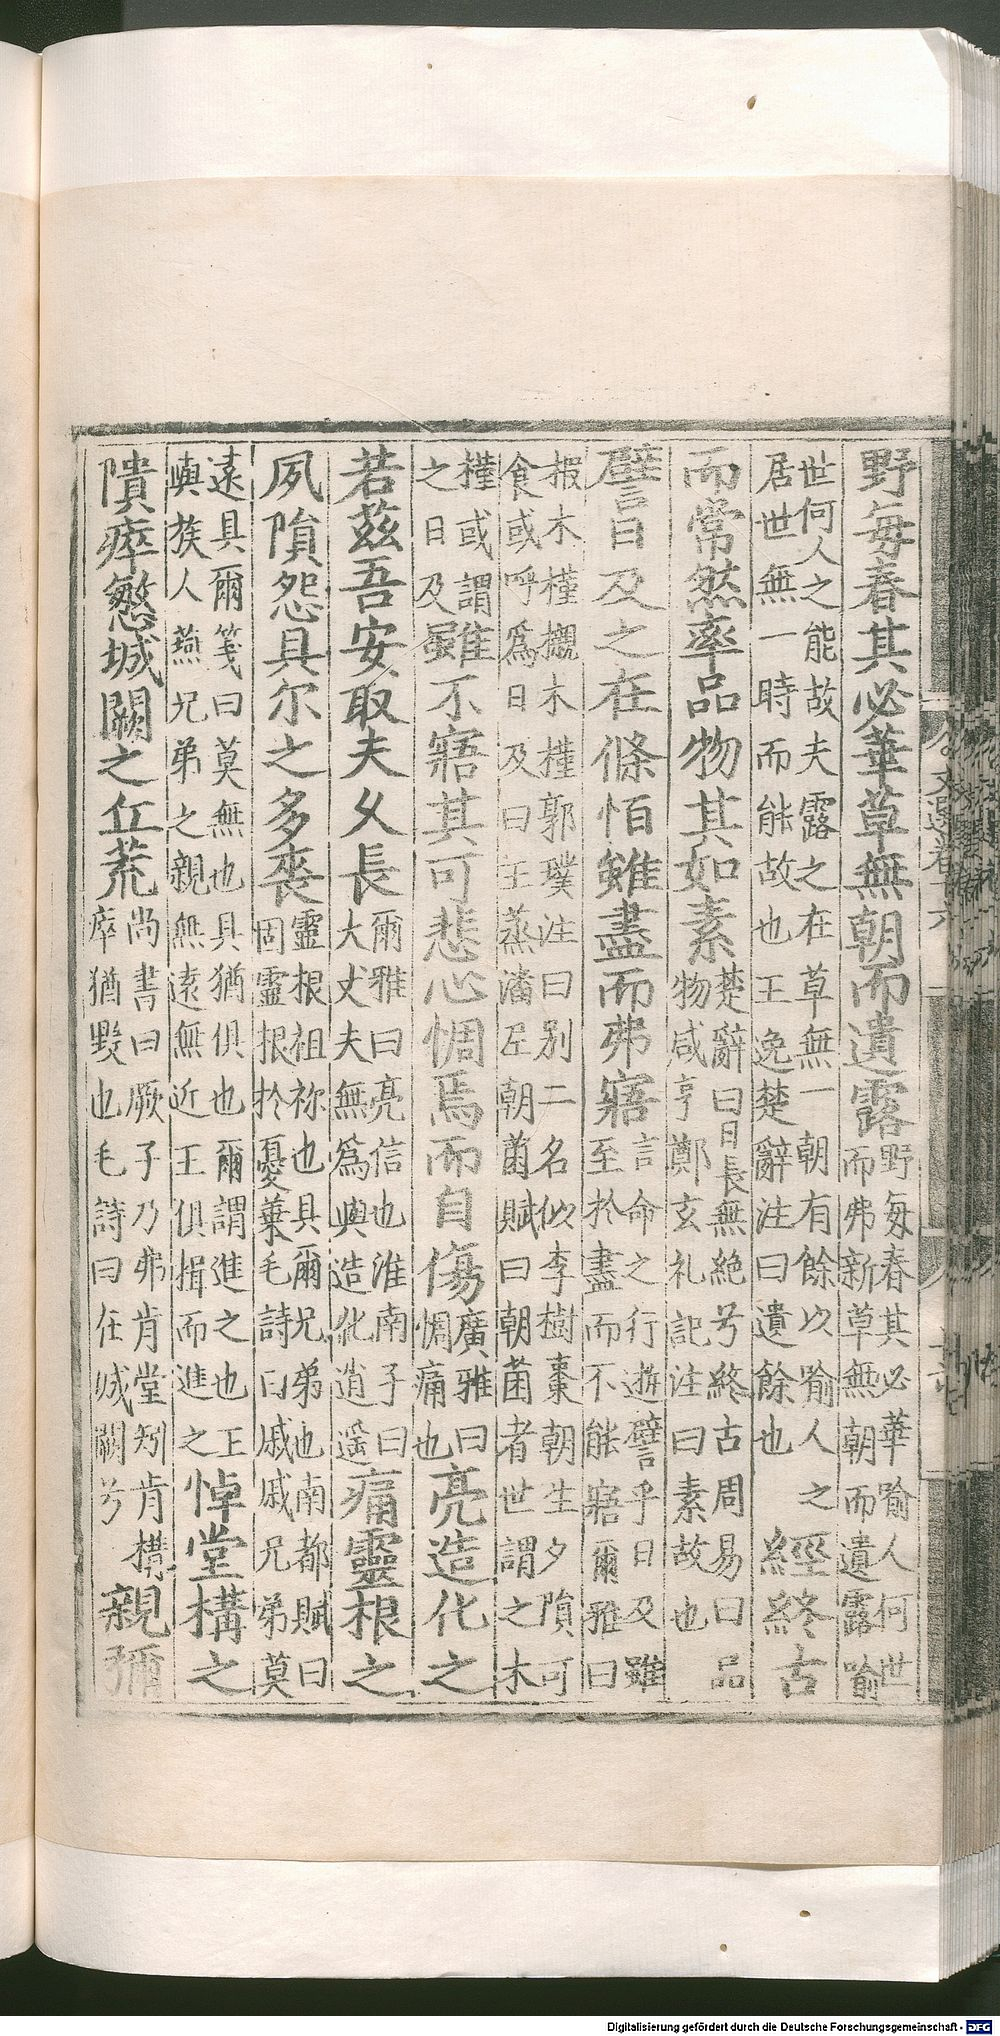 文選卷十六
野每春其必華草無朝而遺露野每春其必華喻人何世而弗新草無朝而遺露喻
世何人之能故夫露之在草無一朝有餘以喻人之居世無一時而能故也王逸楚辭注曰遺餘也經終古
而常然率品物其如素楚辭曰日長無絕兮終古周易曰品物咸亨鄭玄礼記注曰素故也
譬日及之在條恒雖盡而弗寤言命之行逝譬乎日及雖至於盡而不能寤爾雅曰
椵木槿櫬木槿郭璞注曰别二名似李樹棗朝生夕隕可食或呼為日及曰王蒸潘岳朝菌賦曰朝菌者世謂之木
槿或謂之日及雖不寤其可悲心惆焉而自傷廣雅曰惆痛也亮造化之
若茲吾安取夫久長爾雅曰亮信也淮南子曰大丈夫無為與造化逍遥痛靈根之
夙隕怨具尔之多喪靈根祖祢也具爾兄弟也南都賦曰固靈根於憂葉毛詩曰戚戚兄弟莫
遠具爾箋曰莫無也具猶俱也爾謂進之也王與族人燕兄弟之親無遠無近王俱揖而進之悼堂構之
隤瘁慜城闕之丘荒尚書曰厥子乃弗肯堂矧肯構瘁猶毀也毛詩曰在城闕兮親彌
Digitalisierung gefördert durch die Deutsche Forschungsgemeinschaft - DFG